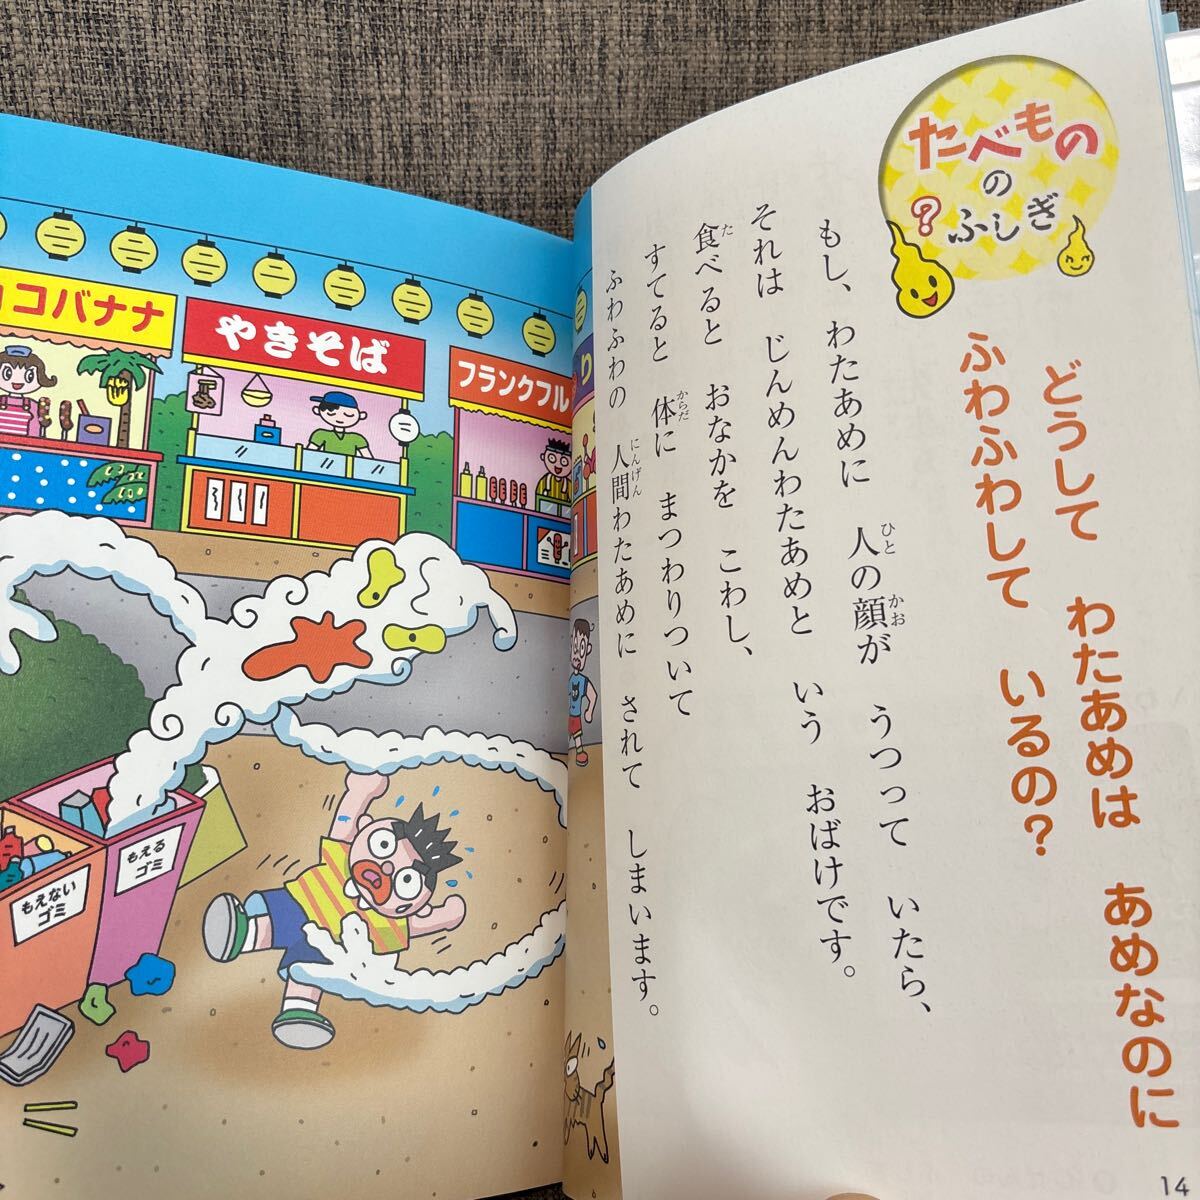 たべもの
の
ふしぎ
?
どうして わたあめは あめなのに
ふわふわして いるの?
もし、わたあめに 人の顔が うつって いたら、
ひと
かお
それは じんめんわたあめと いう おばけです。
食べると おなかを こわし、
た
すてると 体に まつわりついて
からだ
ふわふわの 人間わたあめに されて しまいます。
にんげん
14
コバナナ
やきそば
フランクフル
り
もえる
ゴミ
もえない
ゴミ